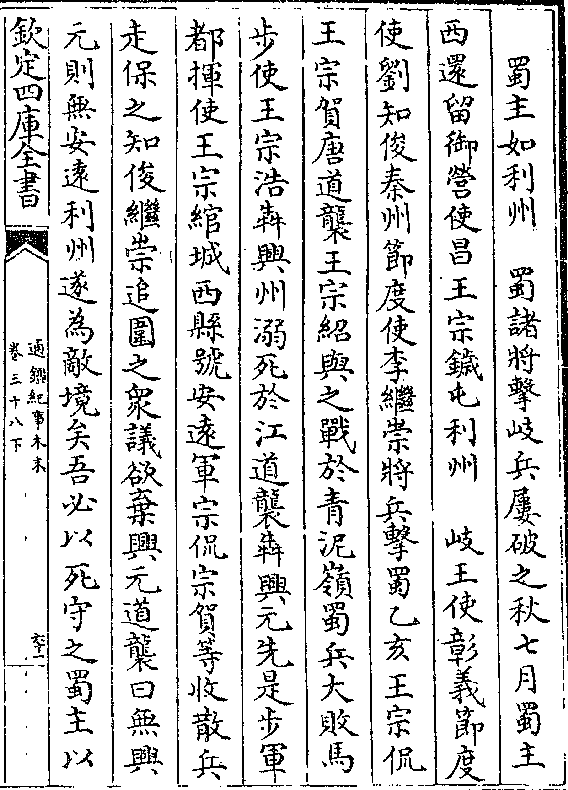 蜀主如利州　蜀諸將擊岐兵屢破之秋七月蜀主
西還留御營使昌王宗鐬屯利州　岐王使彰義節度
使劉知俊秦州節度使李繼崇將兵擊蜀乙亥王宗侃
王宗賀唐道襲王宗紹與之戰於青泥嶺蜀兵大敗馬
步使王宗浩犇興州溺死於江道襲犇興元先是步軍
都揮使王宗綰城西縣號安遠軍宗侃宗賀等收散兵
走保之知俊繼崇追圍之衆議欲棄興元道襲曰無興
元則無安遠利州遂為敵境矣吾必以死守之蜀主以
欽定四庫全書
通鑑紀事本末
卷三十八下